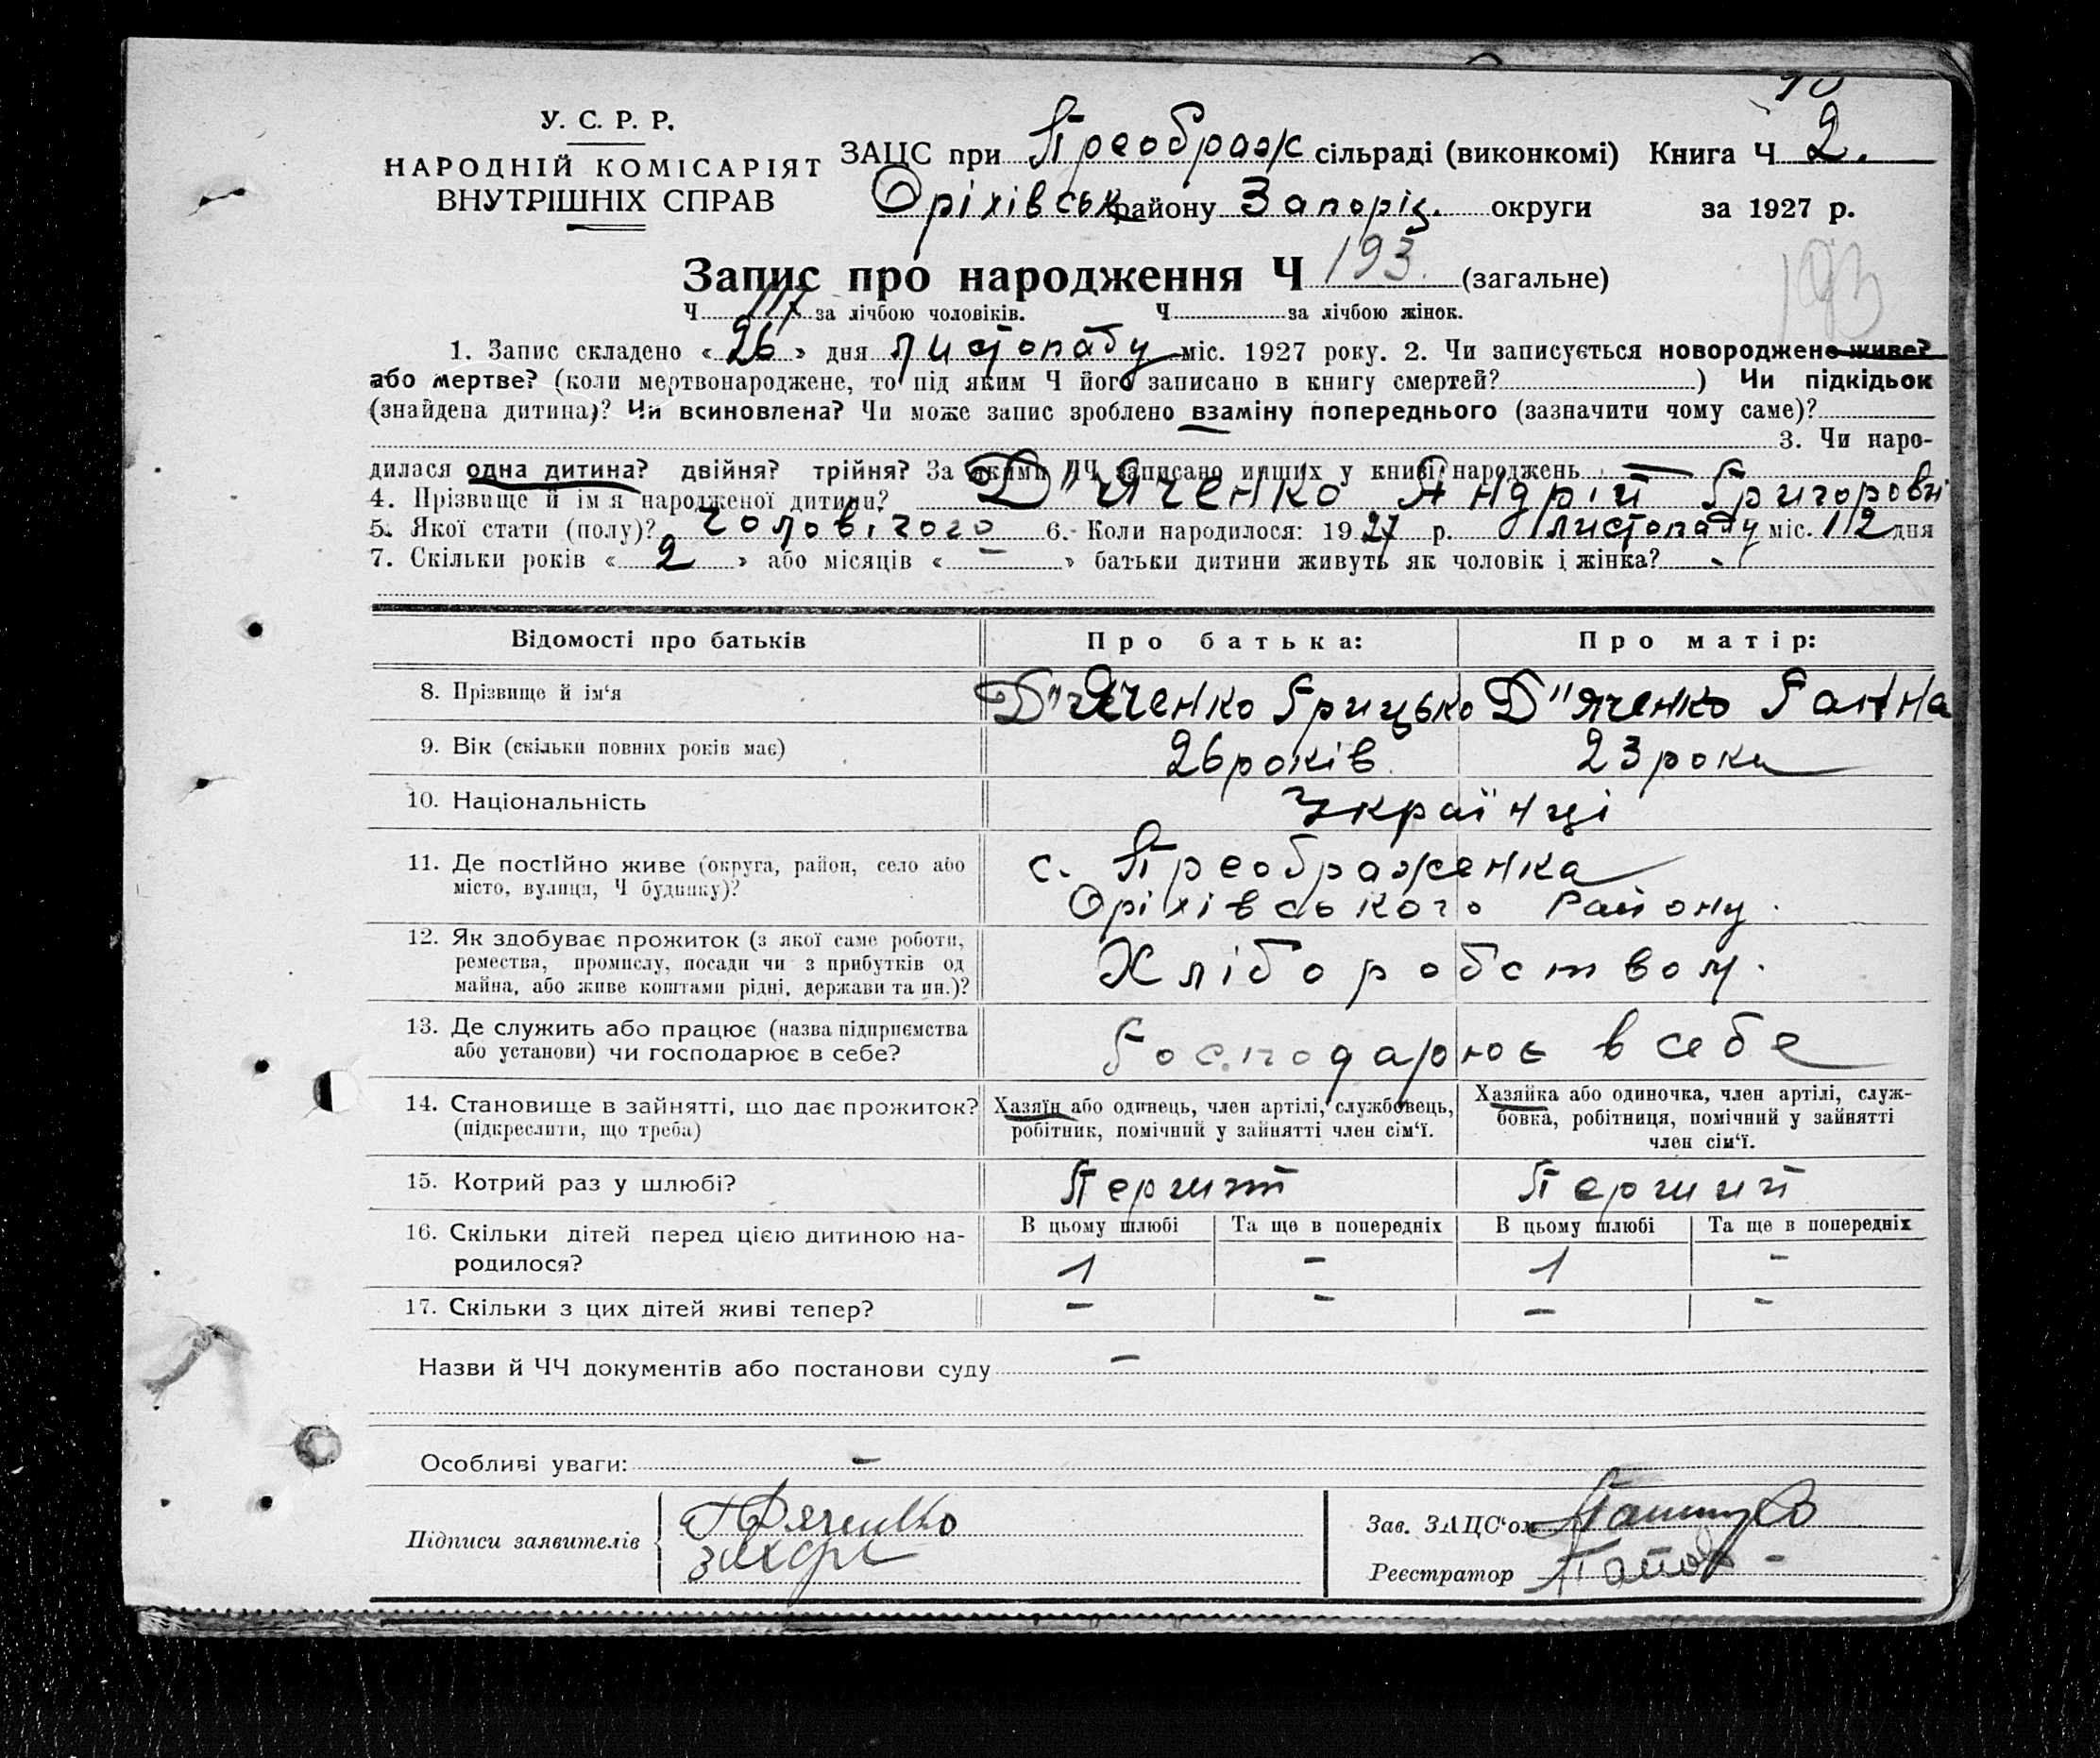 У. С. Р. Р.
НАРОДНІЙ КОМІСАРІЯТ
ВНУТРІШНІХ СПРАВ
ЗАЦС при Преображ сільраді (виконкомі) Книга Ч 2.
Оріхівськ району Запоріз. округи за 1927 р.
Запис про народження Ч 193. (загальне)
193
Ч 117 за лічбою чоловіків. Ч за лічбою жінок.
1. Запис складено « 26 » дня листопаду міс. 1927 року. 2. Чи записується новороджене живе?
або мертве? (коли мертвонароджене, то під яким Ч його записано в книгу смертей? ) Чи підкідьок
(знайдена дитина)? Чи всиновлена? Чи може запис зроблено взаміну попереднього (зазначити чому саме)?
3. Чи наро-
дилася одна дитина? двійня? трійня? За якими ЧЧ записано инших у книзі народжень —
4. Прізвище й ім'я народженої дитини? Д"Яченко Андрій Григорові
5. Якої стати (полу)? чоловічого 6. Коли народилося: 1927 р. листопаду міс. 12 дня
7. Скільки років « 2 » або місяців « – » батьки дитини живуть як чоловік і жінка?
Відомості про батьків Про батька: Про матір:
8. Прізвище й ім‘я Д"Яченко Грицько Д"яченко Ганна
9. Вік (скільки повних років має) 26 років 23 роки
10. Національність Українці
11. Де постійно живе (округа, район, село або
місто, вулиця, Ч будинку)?
с. Преображенка
Оріхівського Району.
12. Як здобуває прожиток (з якої саме роботи,
ремества, промислу, посади чи з прибутків од
майна, або живе коштами рідні, держави та ин.)?
Хліборобством.
13. Де служить або працює (назва підприємства
або установи) чи господарює в себе?
Господарює в себе
14. Становище в зайнятті, що дає прожиток?
(підкреслити, що треба)
Хазяїн або одинець, член артілі, службовець,
робітник, помічний у зайнятті член сім‘ї.
Хазяйка або одиночка, член артілі, служ-
бовка, робітниця, помічний у зайнятті
член сім‘ї.
15. Котрий раз у шлюбі? Перший Перший
16. Скільки дітей перед цією дитиною на-
родилося?
В цьому шлюбі Та ще в попередніх В цьому шлюбі Та ще в попередніх
1 – 1 –
17. Скільки з цих дітей живі тепер? – – – –
Назви й ЧЧ документів або постанови суду –
Особливі уваги: –
Підписи заявителів
Г Дяченко
Зав. ЗАЦС‘ом
Реєстратор